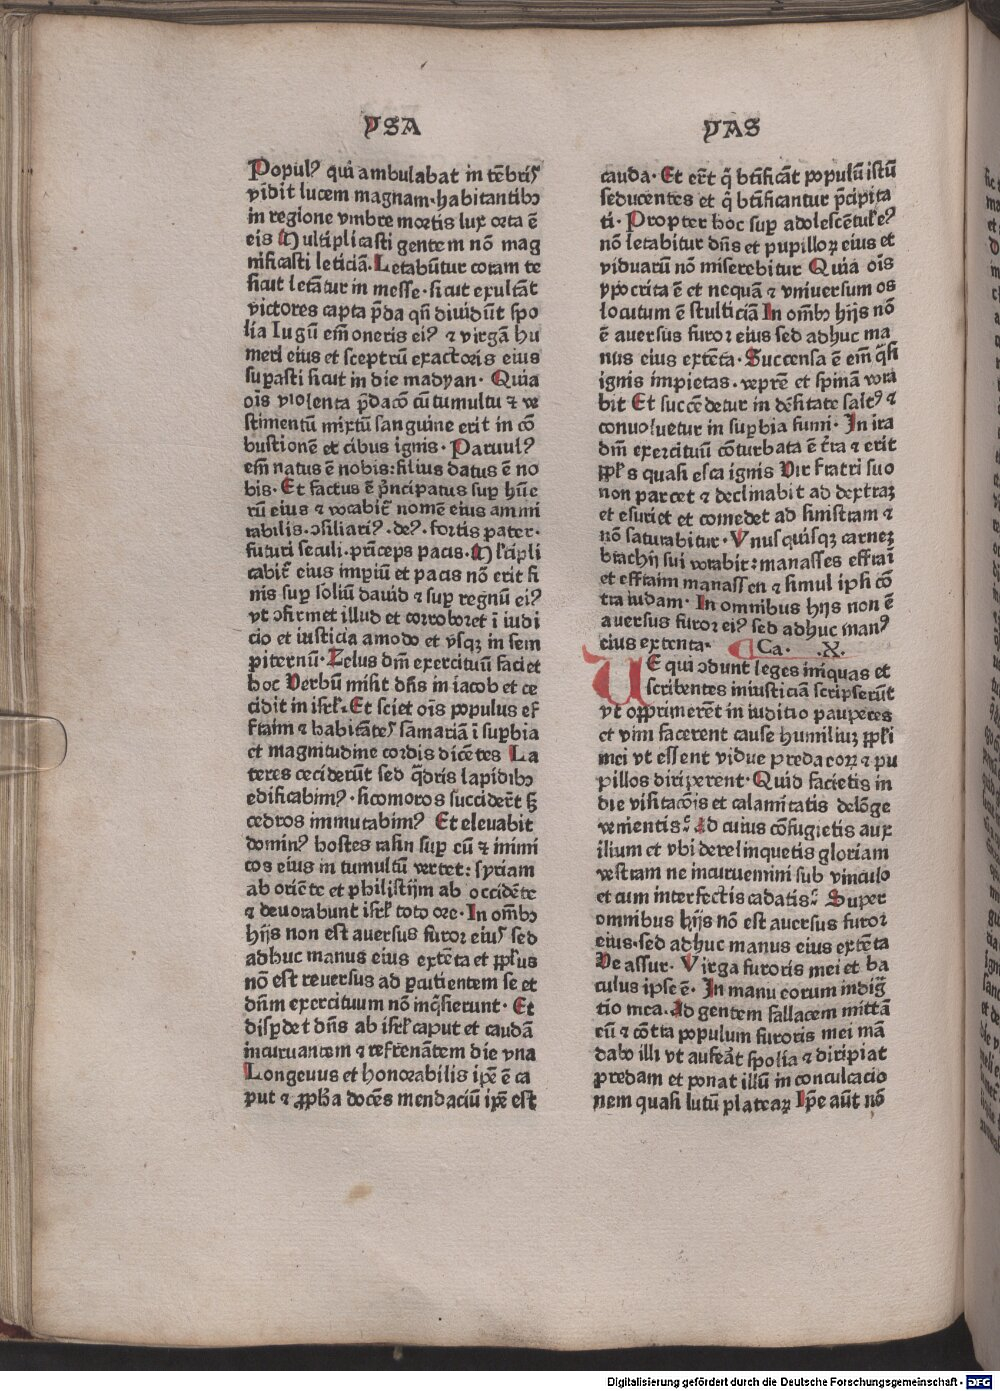 YSA
YAS
Populꝰ qui ambulabat in tēbrꝭ
vidit lucem magnam·habitantibꝫ
in regione vmbre mortis lux orta ē
eis Multiplicasti gentem nō mag
nificasti leticiā.Letabūtur coram te
sicut letātur in messe·sicut exultāt
victores capta p̄da qn̄ diuidūt spo
lia Iugū em̄ oneris eiꝰ ⁊ virgā hu
meri eius et sceptrū exactoris eius
suꝑasti sicut in die madyan· Quia
ois violenta p̄dacō cū tumultu ⁊ ve
stimentū mixtū sanguine erit in cō
bustionē et cibus ignis· Paruulꝰ
em̄ natus ē nobis:filius datus ē no
bis·Et factus ē p̄ncipatus suꝑ hūe
rū eius ⁊ vocabit̄ nomē eius ammi
rabilis·ↄsiliariꝰ·deꝰ·fortis pater·
futuri seculi·prīceps pacis.Ml̄cipli
cabit̄ eius impiū et pacis nō erit fi
nis suꝑ soliū dauid ⁊ suꝑ regnū eiꝰ
vt ↄfirmet illud et corroboret ī iudi
cio et iusticia amodo et vsqꝫ in sem
piternū·Zelus dn̄i exercituū faciet
hoc Verbū misit dn̄s in iacob et ce
cidit in isrl̄·Et sciet ois populus ef
fraim ⁊ habitāteꝭ samariā ī suꝑbia
et magnitudine cordis dicētes La
teres ceciderūt sed q̄dris lapidibꝫ
edificabimꝰ·sicomoros succiderēt sꝫ
cedros immutabimꝰ Et eleuabit
dominꝰ hostes rasin suꝑ eū ⁊ inimi
cos eius in tumultū vertet:syriam
ab oriēte et philistijm ab occidēte
⁊ deuorabunt isrl̄ toto ore·In om̄ibꝫ
hijs non est auersus furor eiuꝭ sed
adhuc manus eius extēta et ppl̄us
nō est reuersus ad ꝑcutientem se et
dn̄m exercituum nō inq̄sierunt· Et
disꝑdet dn̄s ab isrl̄ caput et caudā
incuruantem ⁊ refrenātem die vna
Longeuus et honorabilis ip̄e ē ca
put ⁊ ꝓph̄a docēs mendaciū ip̄e est
cauda·Et erūt q̄ btīficāt populū istū
seducentes et q̄ btīficantur p̄cipita
ti·Propter hoc suꝑ adolescētul̄eꝰ
nō letabitur dn̄s et pupilloꝝ eius et
viduarū nō miserebitur Quia ois
ypocrita ē et nequā ⁊ vniuersum os
locutum ē stulticiā In om̄ibꝫ hijs nō
ē auersus furor eius sed adhuc ma
nus eius extēta·Succensa ē em̄ q̄si
ignis impietas·veprē et spinā vora
bit Et succēdetur in dēsitate saltꝰ ⁊
conuoluetur in suꝑbia fumi·In ira
dn̄i exercituū cōturbata ē t̄ra ⁊ erit
ppl̄s quasi esca ignis Vir fratri suo
non parcet ⁊ declinabit ad dextraꝫ
et esuriet et comedet ad sinistram ⁊
nō saturabitur·Vnusquisqꝫ carneꝫ
brachij sui vorabit:manasses effraī
et effraim manassen ⁊ simul ipsi cō
tra iudam·In omnibus hijs non ē
auersus furor eiꝰ sed adhuc manꝰ
eius extenta· Ca· .X.
UE qui ↄdunt leges iniquas et
scribentes iniusticiā scripserūt
vt opprimerēt in iuditio pauperes
et vim facerent cause humiliuꝫ ppl̄i
mei vt essent vidue preda eoꝝ ⁊ pu
pillos diriperent·Quid facietis in
die visitacōis et calamitatis delōge
venientis? Ad cuius cōfugietis aux
ilium et vbi derelinquetis gloriam
vestram ne incuruemini sub vinculo
et cum interfectis cadatis? Super
omnibus hijs nō est auersus furor
eius·sed adhuc manus eius extēta
Ve assur· Virga furoris mei et ba
culus ipse ē· In manu eorum indiḡ
tio mea.Ad gentem fallacem mittā
eū ⁊ cōtra populum furoris mei mā
dabo illi vt auferāt spolia ⁊ diripiat
predam et ponat illū in conculcacio
nem quasi lutū plateaꝝ Ip̄e aūt nō
Digitalisierung gefördert durch die Deutsche Forschungsgemeinschaft - DFG